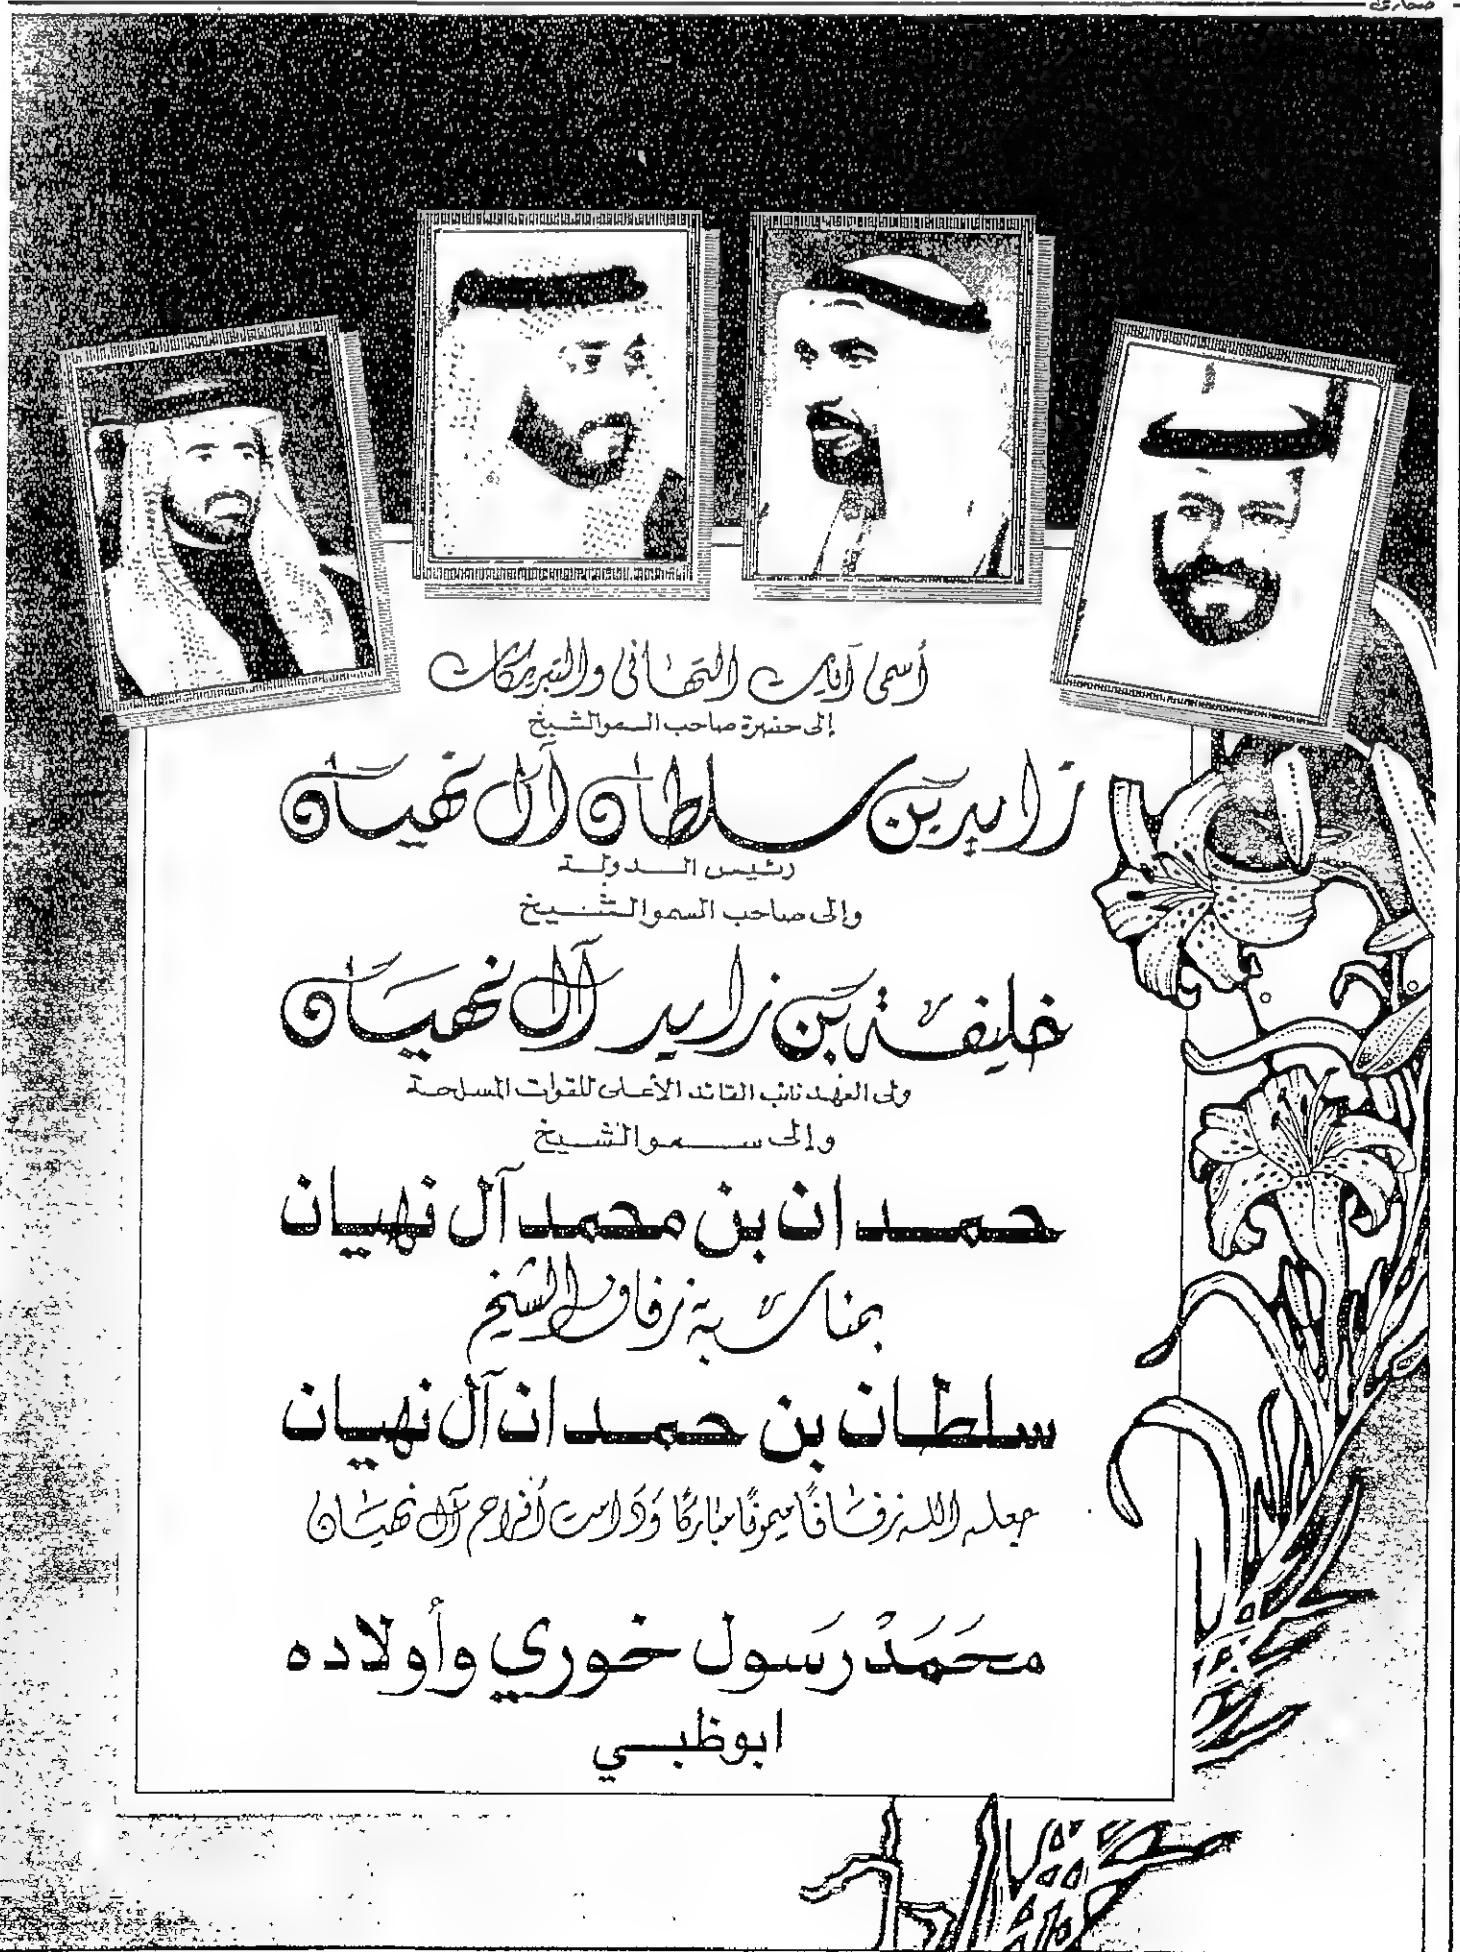 أسمى آيات التهاني والتبريكات
إلى حضرة صاحب السمو الشيخ
زايد بن سلطان آل نهيان
رئيس الدولة
وإلى صاحب السمو الشيخ
خليفة بن زايد آل نهيان
ولى العهد نائب القائد الأعلى للقوات المسلحة
وإلى سمو الشيخ
حمدان بن محمد آل نهيان
بمناسبة زفاف الشيخ
سلطان بن حمدان آل نهيان
جعله الله زفافًا ميمونًا مباركًا وَدَامت أفراح آل نهيان
محَمَدْ رسَول خوري وأولاده
ابوظبي